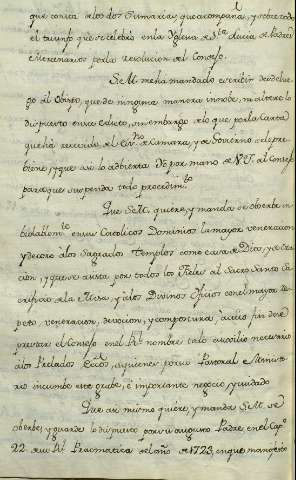 que contra los dos Sumarias, que acompaña, y sobre todo
el triunfo que se celebró en la Yglesia de Sta. de Padres
Mercenarios por la resolucion del Consejo.
SeM. me ha mandado escribir desde lue-
go al Obispo, que de ninguna manera innobe, ni altere lo
dispuesto en su Edicto, sin embargo de lo que por la Carta
que ha recivido de el de la Camara, y de Govierno se le pre-
biene, y que asi lo advierta Yo por mano de V.Y. al Consejo
para que suspenda todo procedim.to
Que SeM. quiere, y manda se observe in-
biolablem.te en sus Catolicos Dominios la mayor veneracion
y decoro a los Sagrados Templos como casa de Dios, y de Ora-
cion, y que se asista por todos los Fieles al Sacro Santo Sa-
crificio de la Missa, y a los Divinos Oficios con el mayor res-
peto veneracion, devocion, y compostura a cuio fin debe
prestar el Consejo en el Rl. nombre todo auxilio necesario
a los Prelados Ecos. a quienes por su Pastoral Minis-
terio incumbe este grabe, é importante negocio, y cuidado
Que asi mismo quiere, y manda SeM. se
observe, y guarde lo dispuesto por su augusto Padre, en el Capo.
22 de su Rl. Pracmatica del año de 1723, en que mando etc